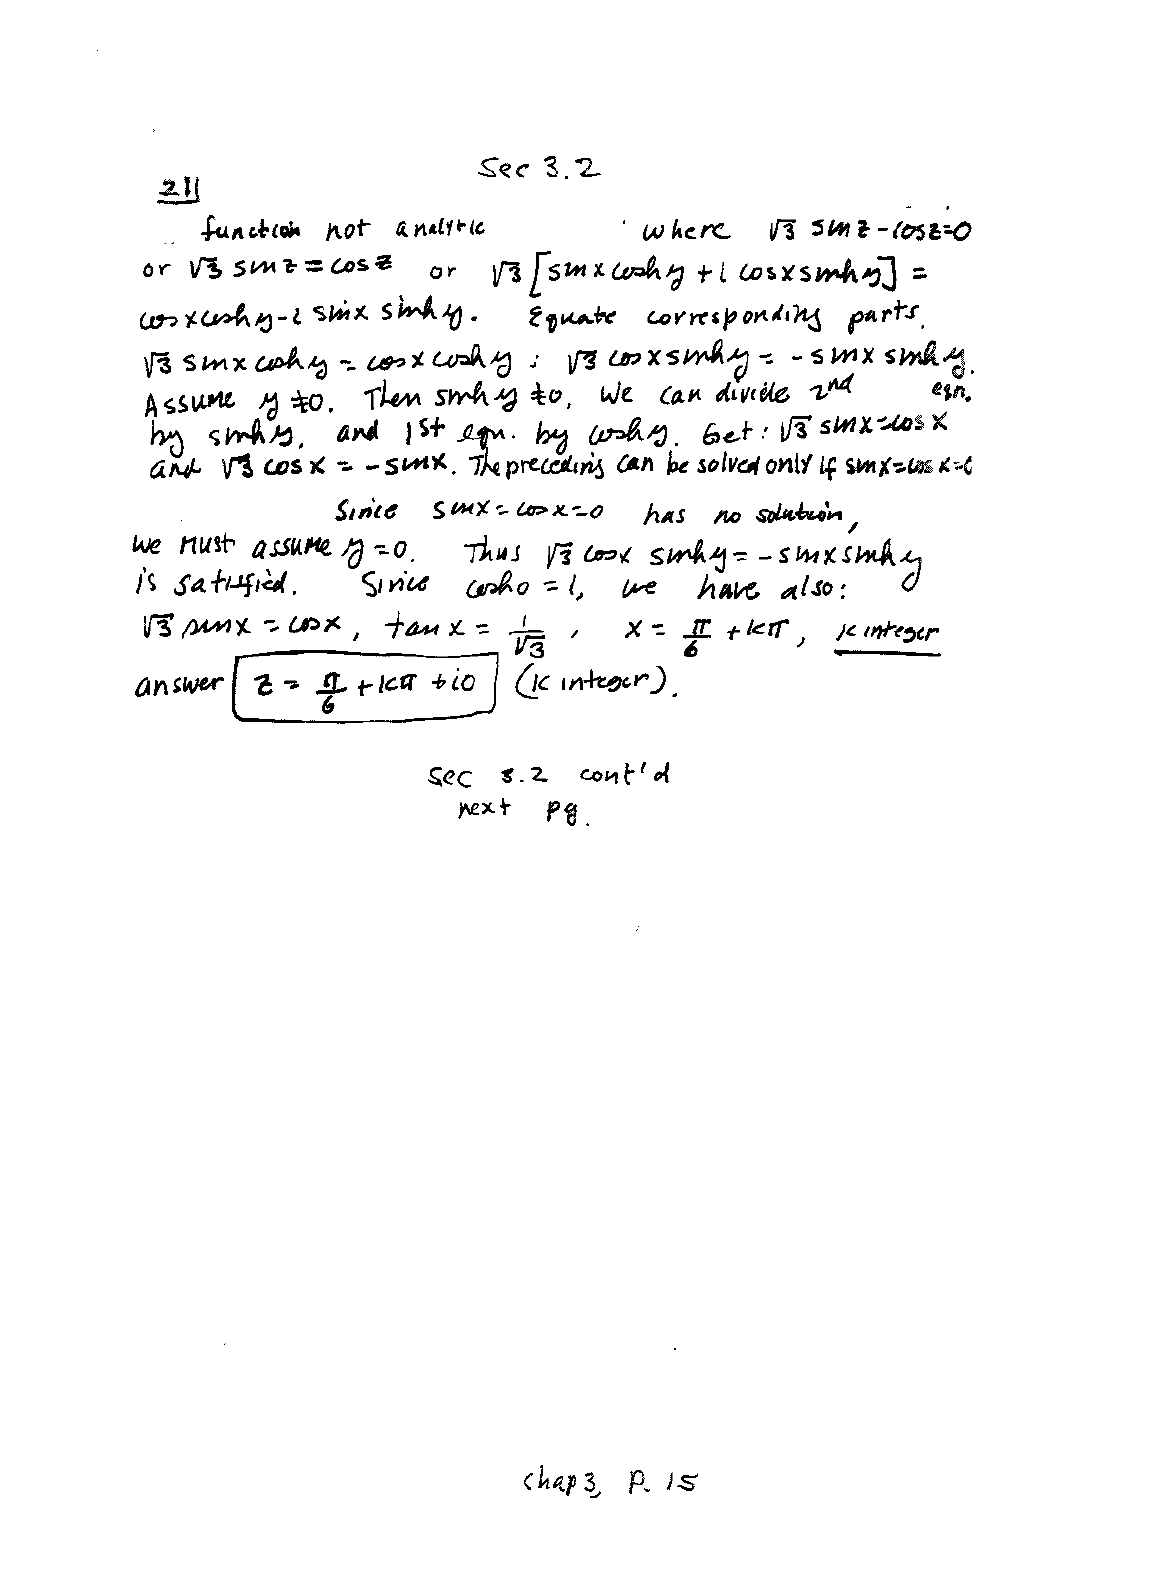 Sec 3.2
21)
function not analytic where √3 sin z - cos z = 0
or √3 sin z = cos z or √3 [sin x cosh y + i cos x sinh y] =
cos x cosh y - i sin x sinh y. Equate corresponding parts.
√3 sin x cosh y = cos x cosh y ; √3 cos x sinh y = - sin x sinh y.
Assume y ≠ 0. Then sinh y ≠ 0, We can divide 2nd eqn.
by sinh y, and 1st eqn. by cosh y. Get: √3 sin x = cos x
and √3 cos x = - sin x. The preceding can be solved only if sin x = cos x = 0
Since sin x = cos x = 0 has no solution,
we must assume y = 0. Thus √3 cos x sinh y = - sin x sinh y
is satisfied. Since cosh 0 = 1, we have also:
√3 sin x = cos x, tan x = 1/√3, x = π/6 + kπ, k integer
answer z = π/6 + kπ + i0 (k integer).
Sec 3.2 cont'd
next pg.
chap 3, P. 15